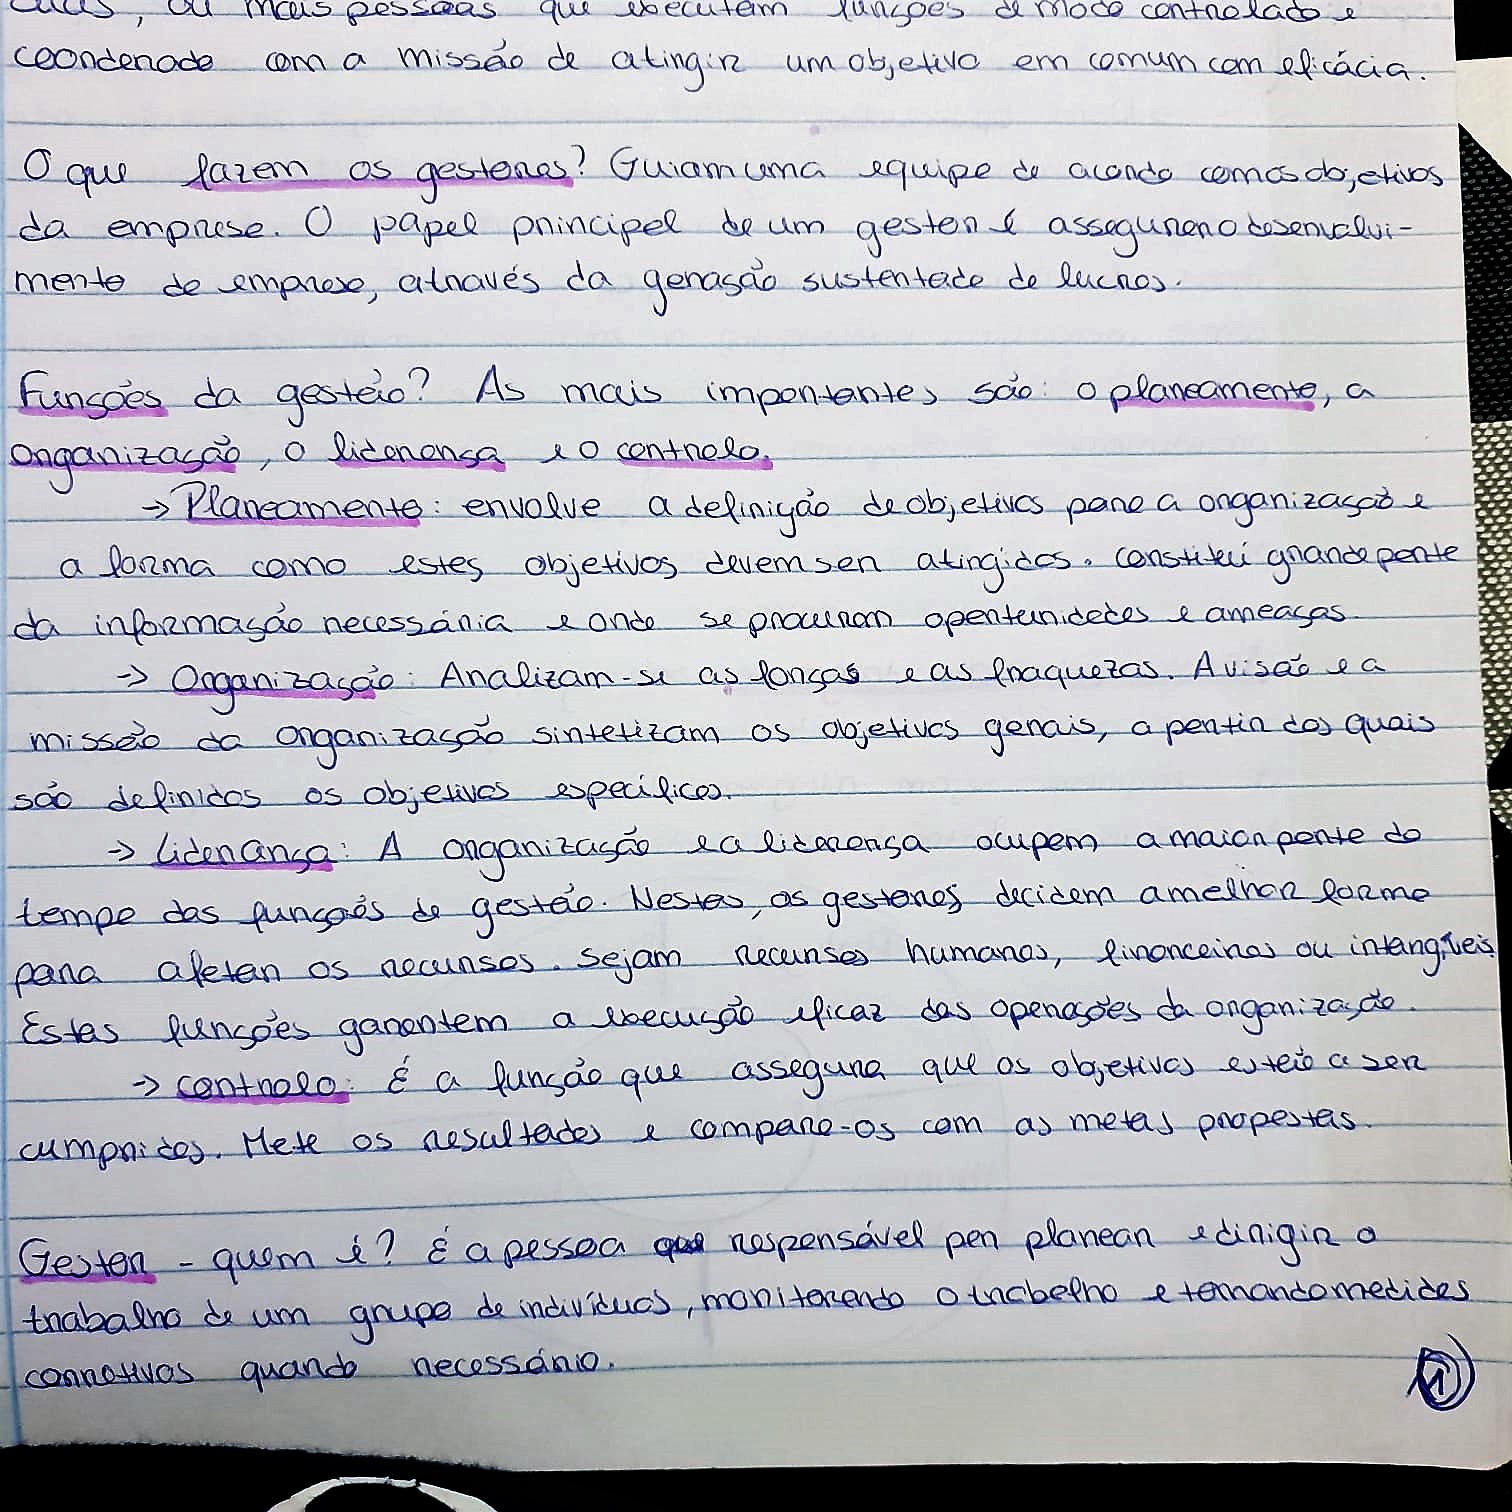 duas, ou mais pessoas que executem funções de modo controlado e
coordenado com a missão de atingir um objetivo em comum com eficácia.
O que fazem os gestores? Guiam uma equipe de acordo com os objetivos
da empresa. O papel principal de um gestor é assegurar o desenvolvi-
mento da empresa, através da geração sustentada de lucros.
Funções da gestão? As mais importantes são: o planeamento, a
organização, a liderança e o controlo.
→ Planeamento: envolve a definição de objetivos para a organização e
a forma como estes objetivos devem ser atingidos. Constitui grande parte
da informação necessária e onde se procuram oportunidades e ameaças.
→ Organização: Analizam-se as forças e as fraquezas. A visão e a
missão da organização sintetizam os objetivos gerais, a partir dos quais
são definidos os objetivos específicos.
→ Liderança: A organização e a liderança ocupam a maior parte do
tempo das funções de gestão. Nestas, os gestores decidem a melhor forma
para afetar os recursos. Sejam recursos humanos, financeiros ou intangíveis
Estas funções garantem a execução eficaz das operações da organização.
→ Controlo: É a função que assegura que os objetivos estão a ser
cumpridos. Mete os resultados e compara-os com as metas propostas.
Gestor - quem é? É a pessoa responsável por planear e dirigir o
trabalho de um grupo de indivíduos, monitorando o trabalho e tomando medidas
corretivas quando necessário.
1